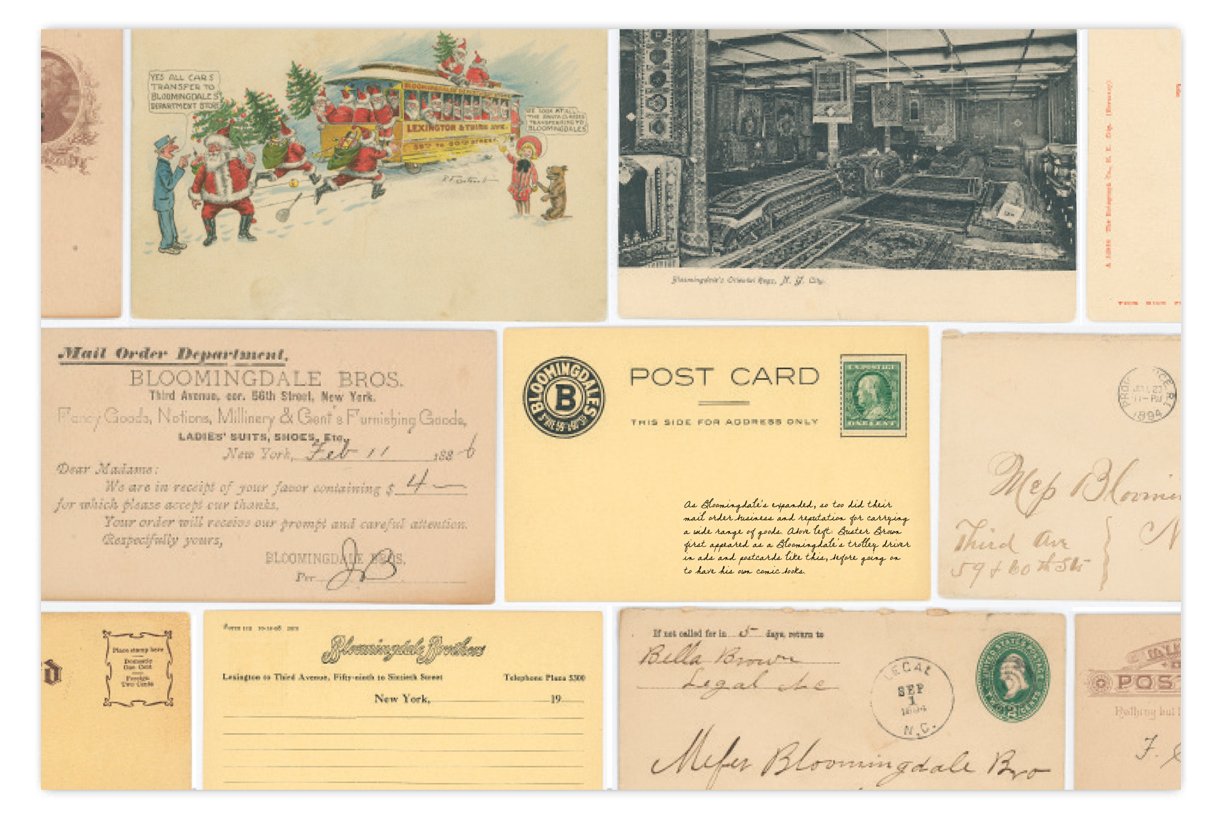 YES ALL CARS
TRANSFER TO
BLOOMINGDALES'
DEPARTMENT STORE
LEXINGTON & THIRD AVE.
59TH TO 60TH STREET
WE LOOK AT ALL
THE SANTA CLAUSES
TRANSFERRING TO
BLOOMINGDALES
Bloomingdale's Oriental Rugs, N. Y. City.
Mail Order Department,
BLOOMINGDALE BROS.
Third Avenue, cor. 56th Street, New York.
Fancy Goods, Notions, Millinery & Gent's Furnishing Goods,
LADIES' SUITS, SHOES, Etc.
New York, Feb 11 1886
Dear Madame:
We are in receipt of your favor containing $ 4 —
for which please accept our thanks.
Your order will receive our prompt and careful attention.
Respectfully yours,
BLOOMINGDALE BROS.
Per
BLOOMINGDALES
B
POST CARD
THIS SIDE FOR ADDRESS ONLY
U.S. POSTAGE
ONE CENT
As Bloomingdale's expanded, so too did their
mail order business and reputation for carrying
a wide range of goods. Above left: Buster Brown
first appeared as a Bloomingdale's trolley driver
in ads and postcards like this, before going on
to have his own comic books.
1894
Third Ave
59 & 60th Sts
Place stamp here
Domestic
One Cent
Foreign
Two Cents
Bloomingdale Brothers
Lexington to Third Avenue, Fifty-ninth to Sixtieth Street
Telephone Plaza 5300
New York, 19
If not called for in 5 days, return to
Bella Brown
Legal N.C.
LEGAL
SEP
1
1894
N.C.
UNITED STATES POSTAGE
2 CENTS
Bloomingdale Bro
POS